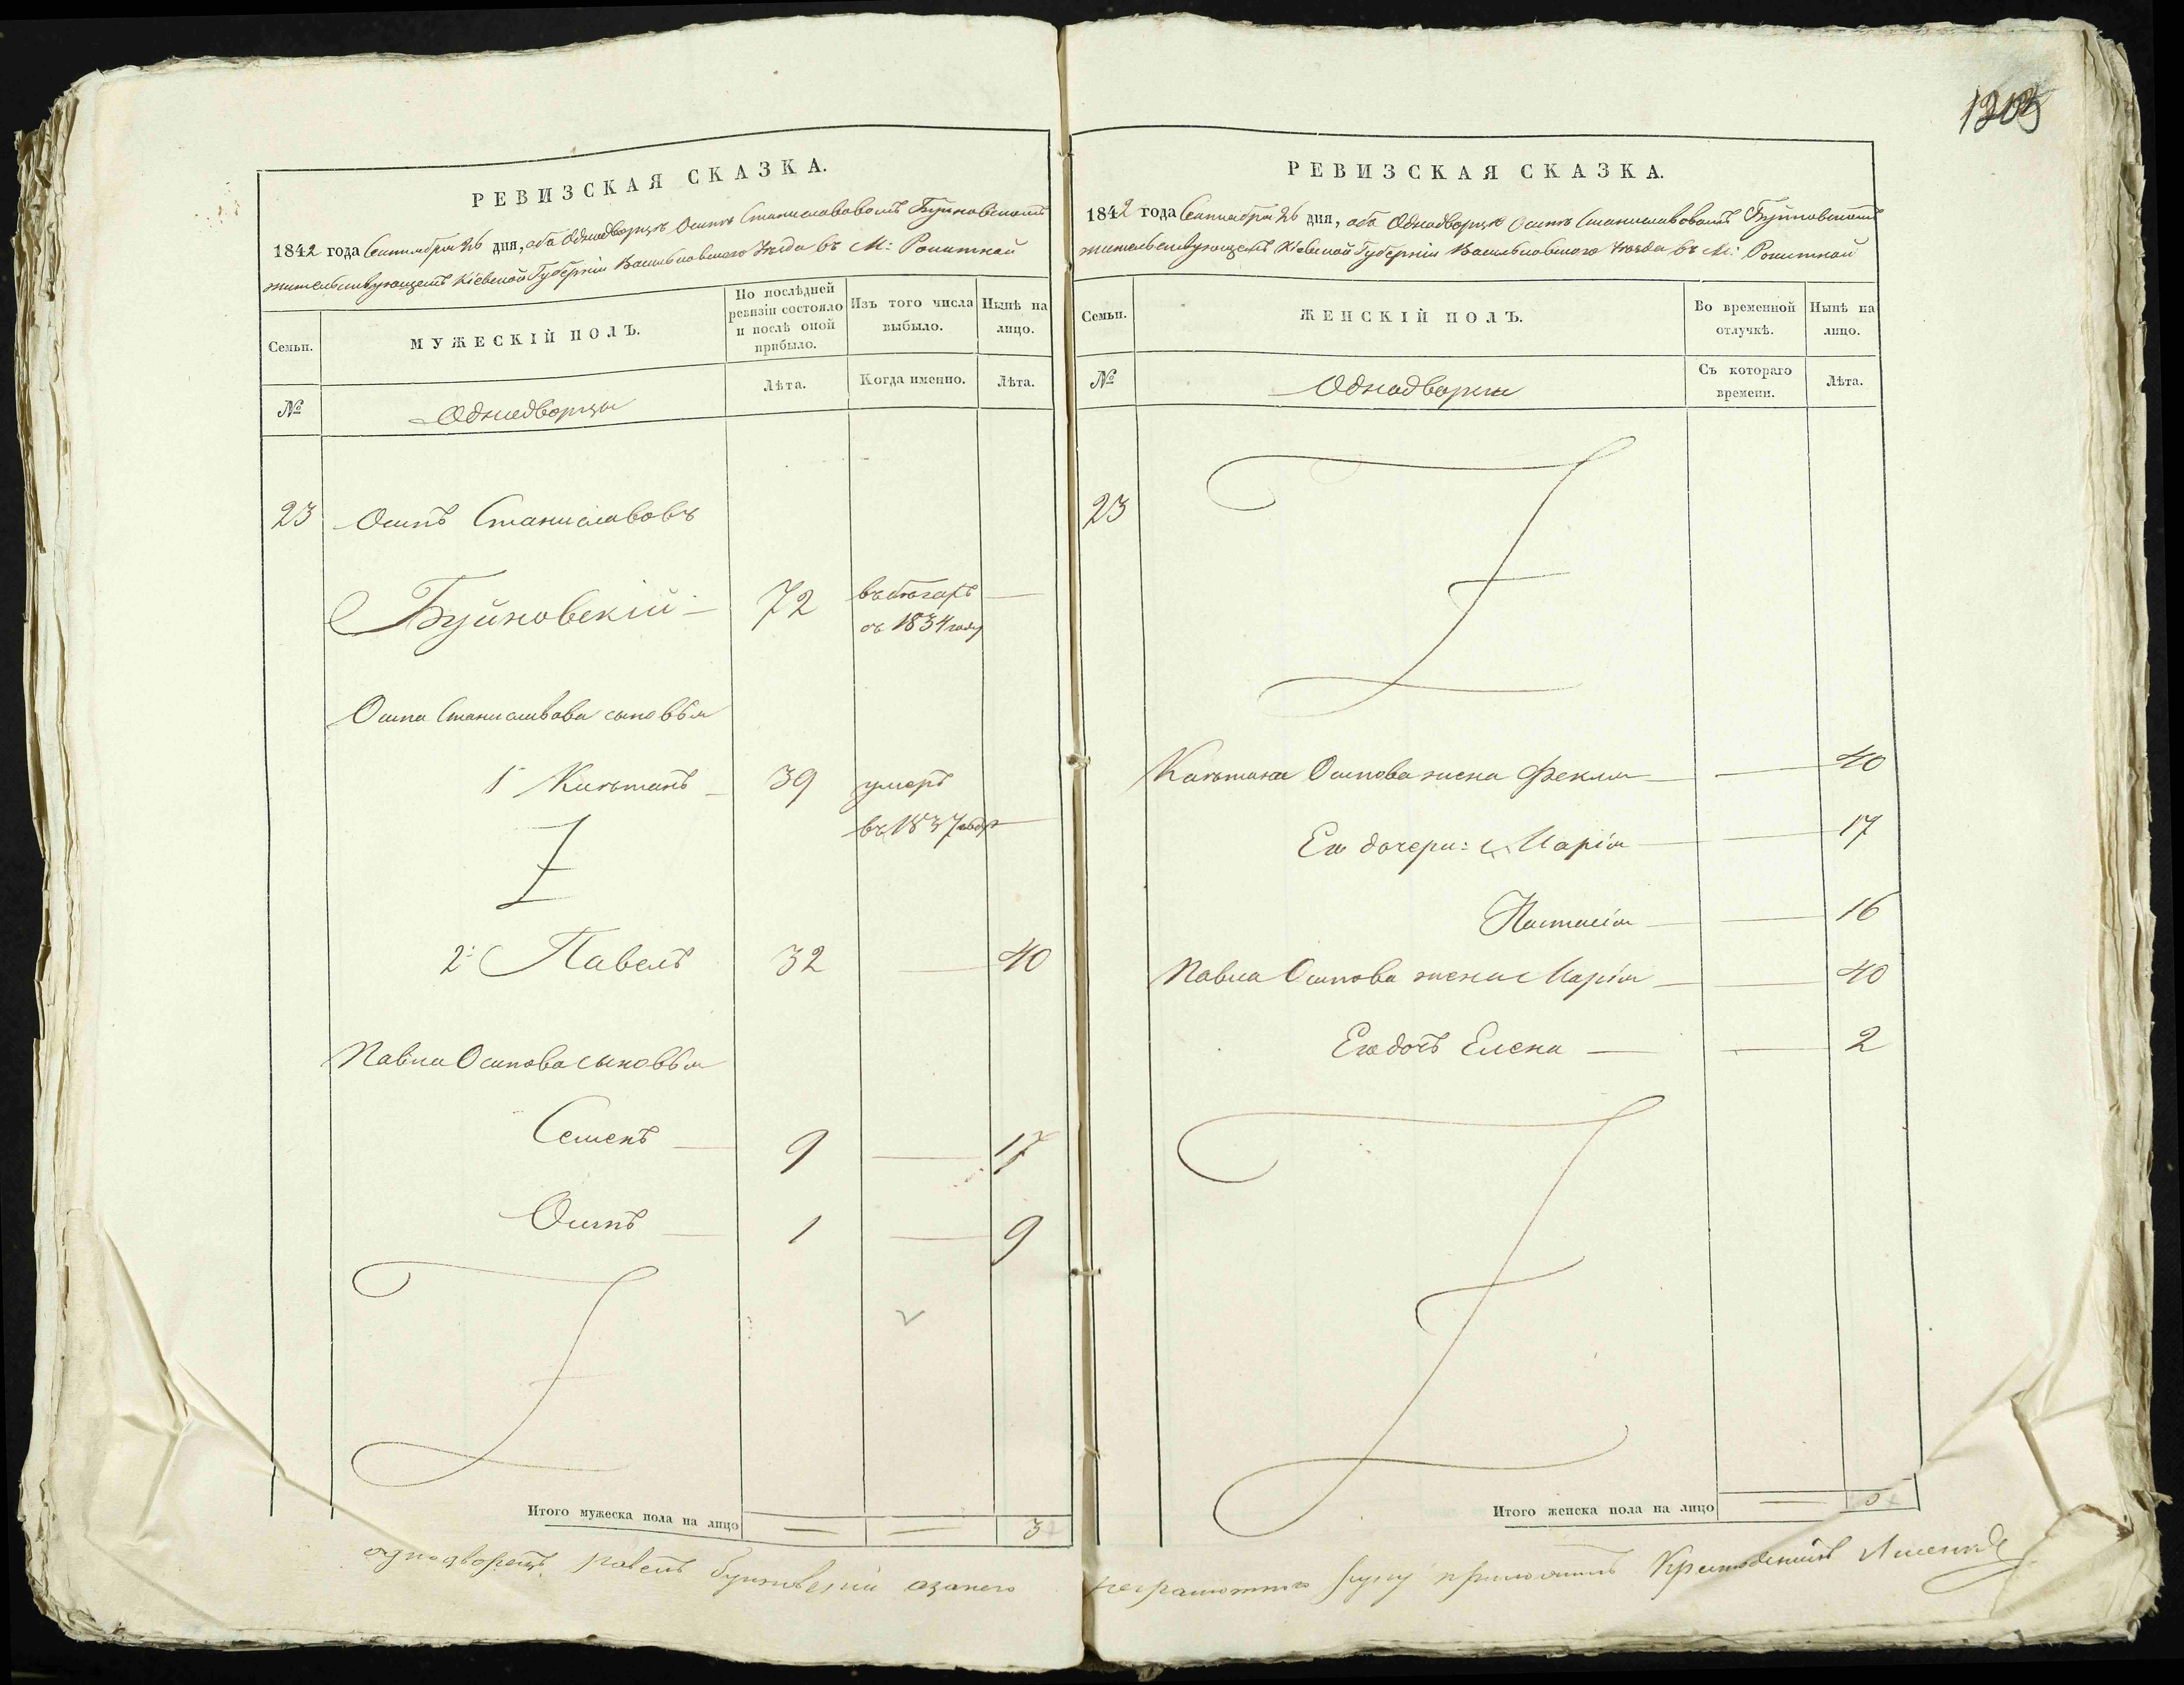 1203
РЕВИЗСКАЯ СКАЗКА.
1842 года Сентября 26 дня, объ Однодворцѣ Осипѣ Станиславовомъ Буйновскомъ
жительствующемъ Кіевской Губерніи Васильковскаго Уѣзда въ М: Рокитной
Семьи.
МУЖЕСКІЙ ПОЛЪ.
По послѣдней ревизіи состояло и послѣ оной прибыло.
Изъ того числа выбыло.
Нынѣ на лицо.
№
Однодворцы
Лѣта.
Когда именно.
Лѣта.
23 Осипъ Станиславовъ
Буйновскій 72 въ бѣгахъ —
съ 1834 году
Осипа Станиславова сыновья
1 Каэтанъ 39 умеръ
въ 1837 годѣ —
2: Павелъ 32 — 40
Павла Осипова сыновья
Семенъ — 9 — 17
Осипъ — 1 — 9
Итого мужеска пола на лицо 3
РЕВИЗСКАЯ СКАЗКА.
1842 года Сентября 26 дня, объ Однодворцѣ Осипѣ Станиславовомъ Буйновскомъ
жительствующемъ Кіевской Губерніи Васильковскаго Уѣзда въ М: Рокитной
Семьи.
ЖЕНСКІЙ ПОЛЪ.
Во временной отлучкѣ.
Нынѣ на лицо.
№
Однодворки
Съ котораго времени.
Лѣта.
23
Каэтана Осипова жена Фекла — — 40
Его дочери: Марія — — 17
Настасія — — 16
Павла Осипова жена Марія — — 40
Его дочь Елена — — 2
Итого женска пола на лицо 5
однодворецъ Павелъ Буйновскій азанего неграмотнаго руку приложилъ